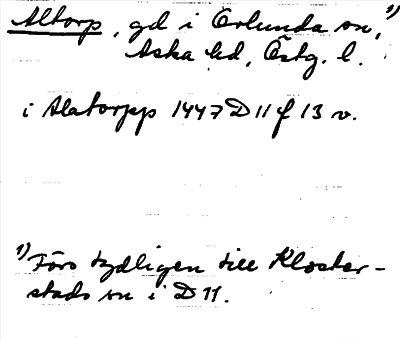 Altorp, gd i Örlunda sn,¹⁾
Aska hd, Östg. l.
i Alatorpp 1447 D 11 f 13 v.
¹⁾ Förs tydligen till Kloster-
stads sn i D 11.